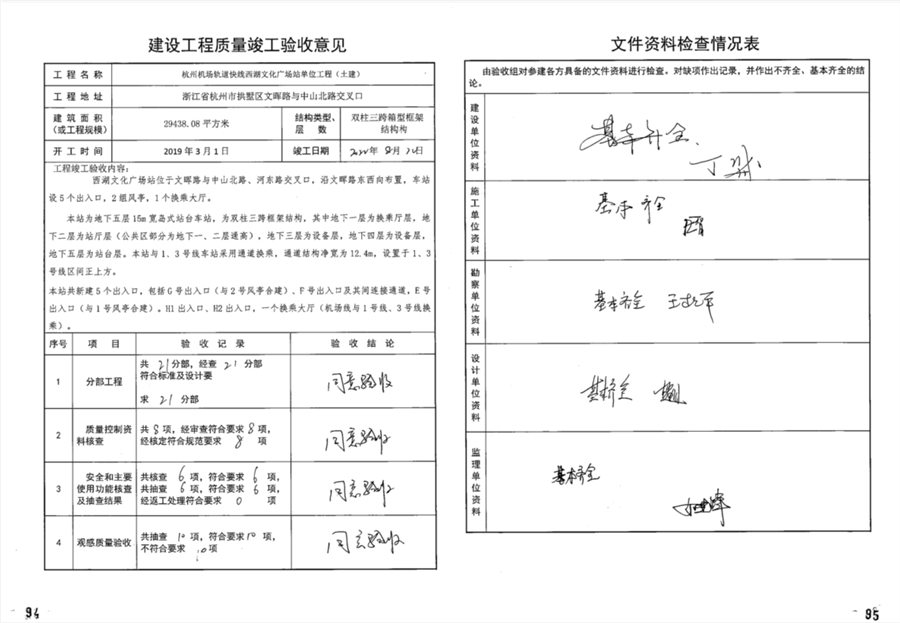 建设工程质量竣工验收意见
工程名称 杭州机场轨道快线西湖文化广场站单位工程（土建）
工程地址 浙江省杭州市拱墅区文晖路与中山北路交叉口
建筑面积（或工程规模） 29438.08 平方米 结构类型、层数 双柱三跨箱型框架结构构
开工时间 2019 年 3 月 1 日 竣工日期
工程竣工验收内容：
西湖文化广场站位于文晖路与中山北路、河东路交叉口，沿文晖路东西向布置，车站
设 5 个出入口，2 组风亭，1 个换乘大厅。
本站为地下五层 15m 宽岛式站台车站，为双柱三跨框架结构，其中地下一层为换乘厅层，地
下二层为站厅层（公共区部分为地下一、二层通高），地下三层为设备层，地下四层为设备层，
地下五层为站台层。本站与 1、3 号线车站采用通道换乘，通道结构净宽为 12.4m，设置于 1、3
号线区间正上方。
本站共新建 5 个出入口，包括 G 号出入口（与 2 号风亭合建）、F 号出入口及其间连接通道，E 号
出入口（与 1 号风亭合建）。H1 出入口、H2 出入口，一个换乘大厅（机场线与 1 号线、3 号线换
乘）。
序号 项目 验收记录 验收结论
1 分部工程 共 21 分部，经查 21 分部
符合标准及设计要
求 21 分部
同意验收
2 质量控制资料核查 共 8 项，经审查符合要求 8 项，
经核定符合规范要求 8 项
同意验收
3 安全和主要使用功能核查及抽查结果 共核查 6 项，符合要求 6 项，
共抽查 6 项，符合要求 6 项，
经返工处理符合要求 0 项
同意验收
4 观感质量验收 共抽查 10 项，符合要求 10 项，
不符合要求 项
同意验收
94
文件资料检查情况表
由验收组对参建各方具备的文件资料进行检查。对缺项作出记录，并作出不齐全、基本齐全的结
论。
建设单位资料 基本齐全.
施工单位资料 基本齐全
勘察单位资料 基本齐全
设计单位资料 基本齐全
监理单位资料 基本齐全
95